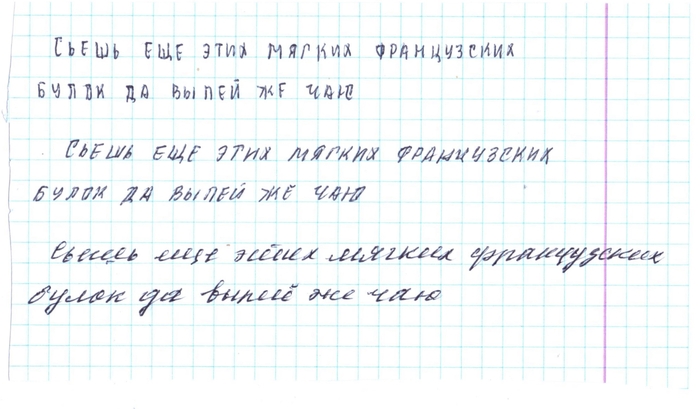 Сьешь еще этих мягких французских
булок да выпей же чаю
Сьешь еще этих мягких французских
булок да выпей же чаю
Сьешь еще этих мягких французских
булок да выпей же чаю